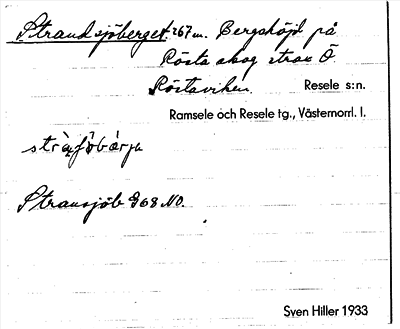 Strandsjöberget 267 m. Bergshöjd på
Rösta skog strax Ö.
Röstaviken Resele s:n.
Ramsele och Resele tg., Västernorrl. l.
Stransjöb 968 NO.
Sven Hiller 1933